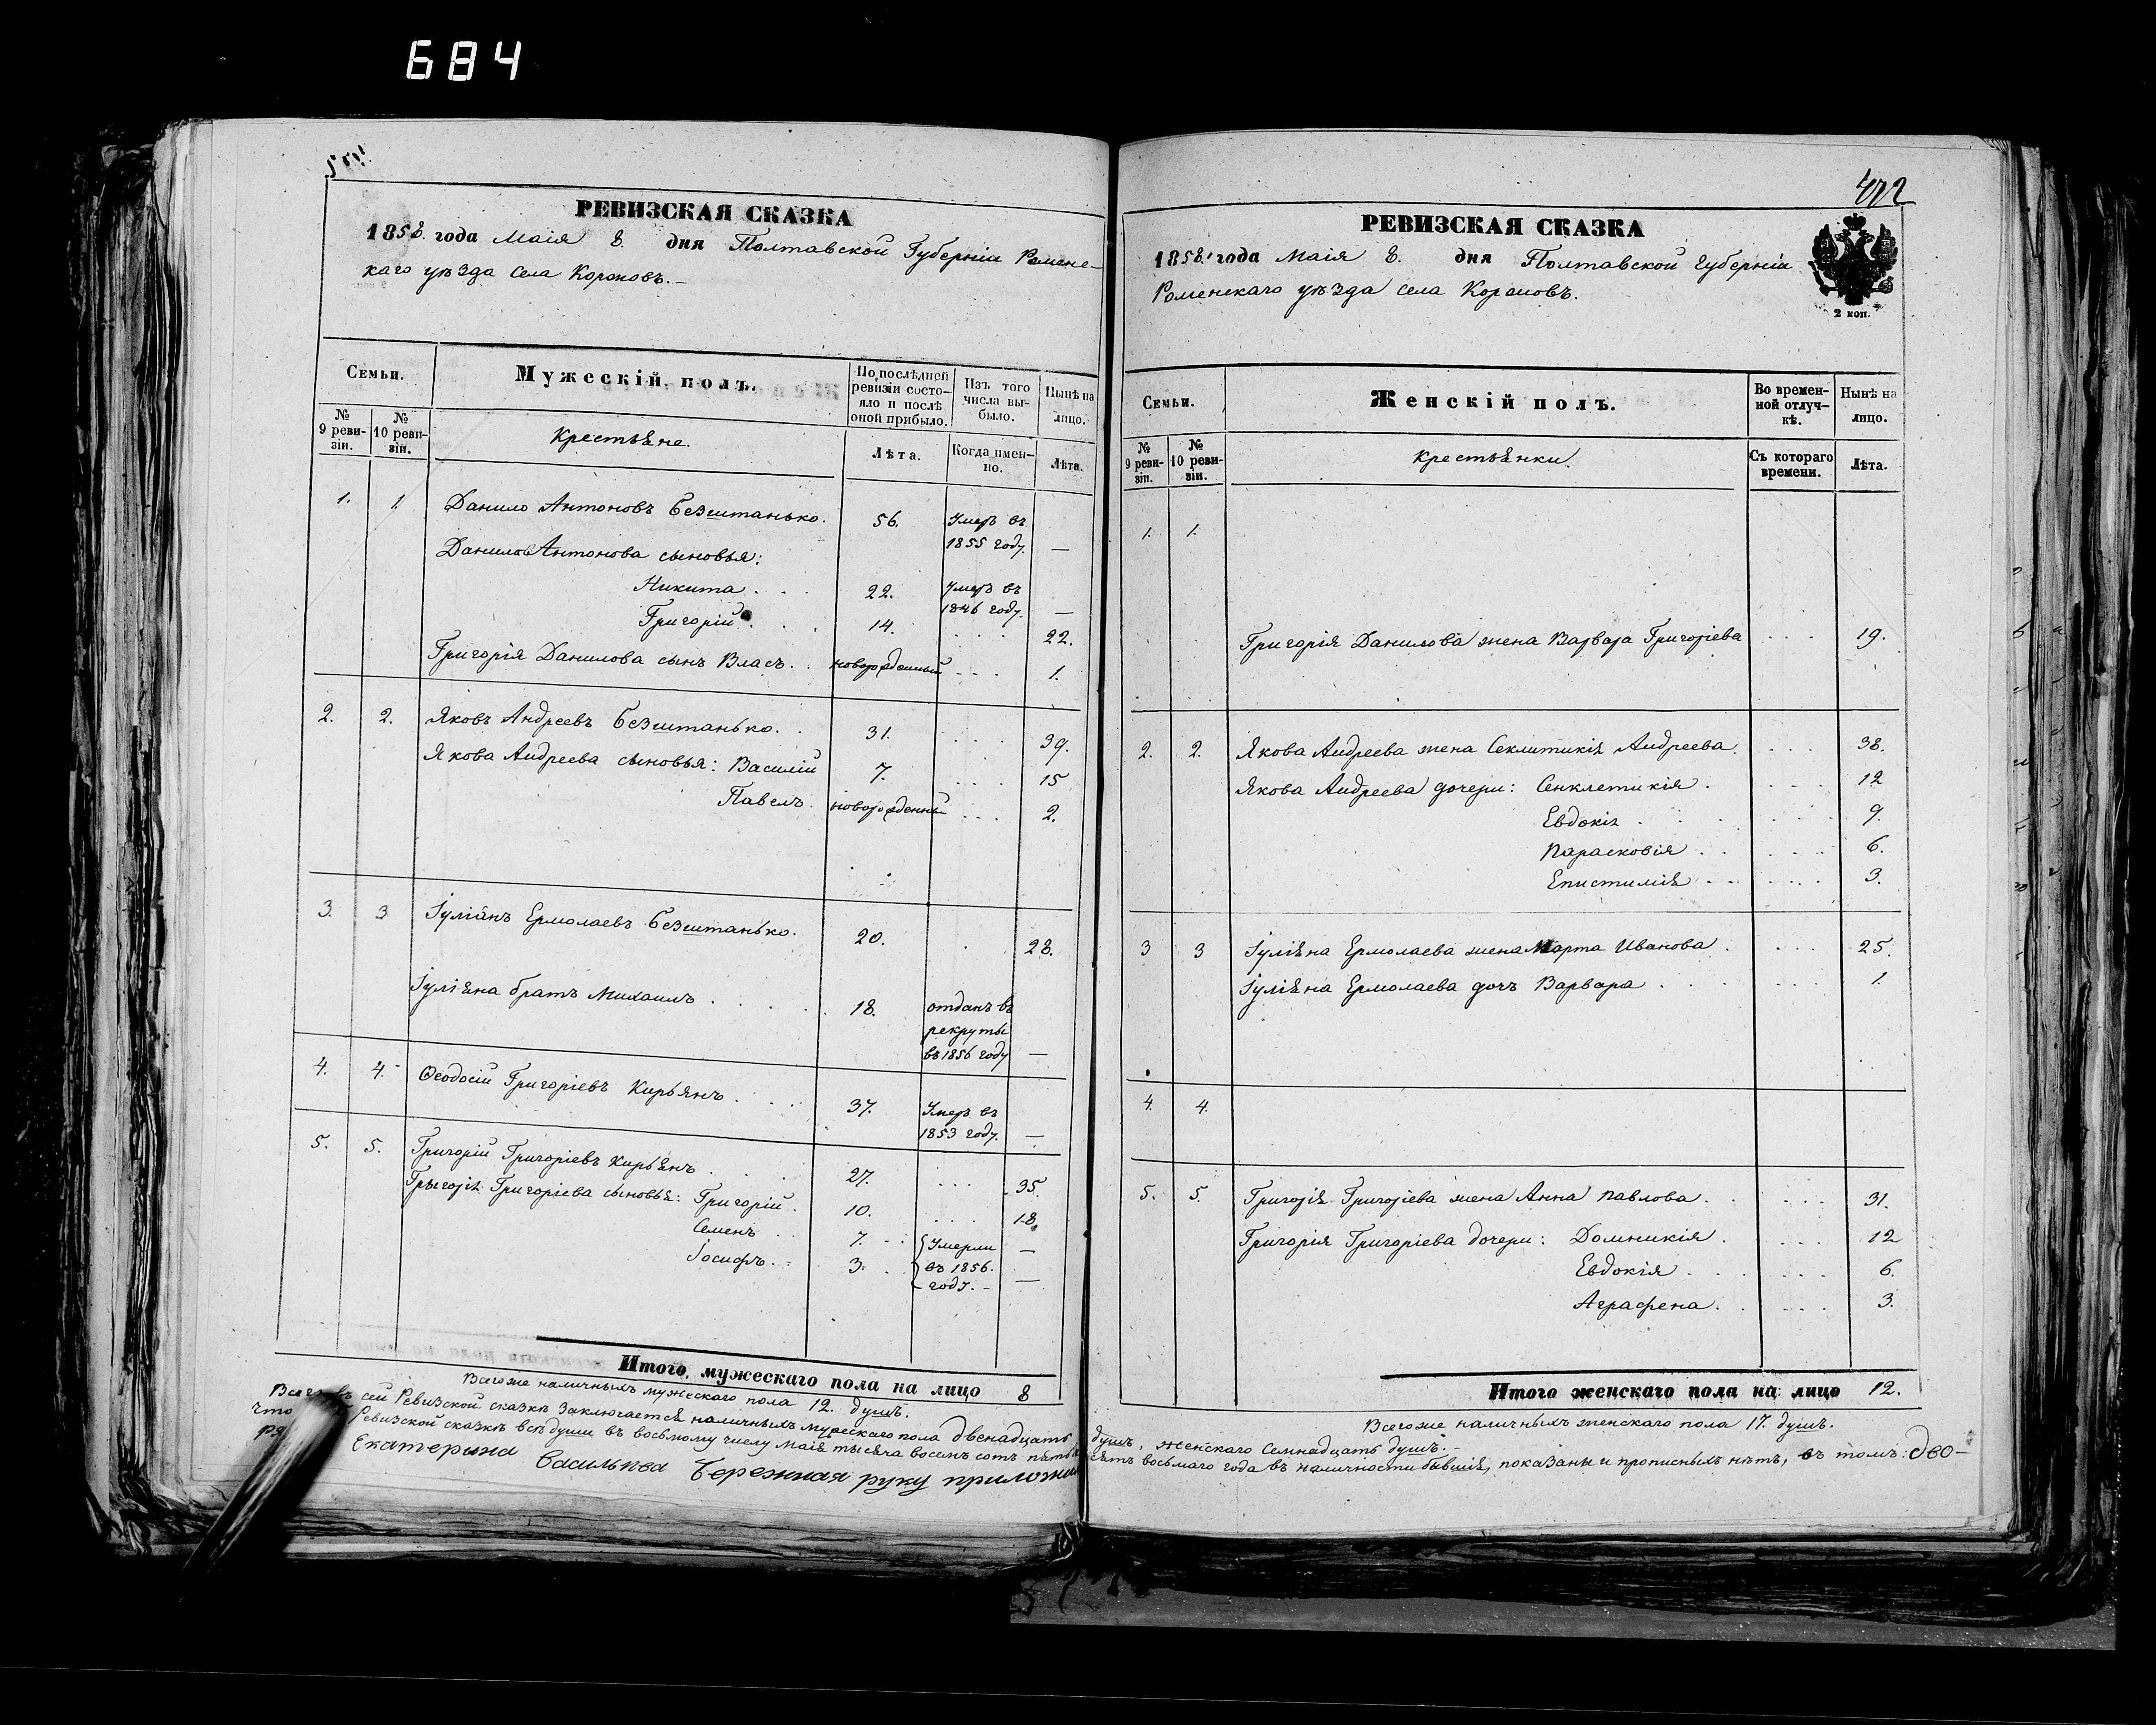 684
РЕВИЗСКАЯ СКАЗКА
1858. года Маія 8. дня Полтавской Губерніи Роменс-
каго уѣзда села Корововъ.
Семьи.
Мужескій полъ.
По послѣдней ревизіи состояло и послѣ оной прибыло.
Изъ того числа выбыло.
Нынѣ на лицо.
№ 9 ревизіи.
№ 10 ревизіи.
Крестьяне.
Лѣта.
Когда именно.
Лѣта.
1. 1. Данило Антоновъ Безштанько. 56. Умеръ въ 1855 году. —
Данилов Антонова сыновья:
Никита . . . 22. Умеръ въ 1846 году. —
Григорій . . . 14. . . . 22.
Григорія Данилова сынъ Власъ . . новорожденный . . . 1.
2. 2. Яковъ Андреевъ Безштанько. . 31. . . . 39.
Якова Андреева сыновья: Василій 7. . . . 15
Павелъ . новорожденный . . . 2.
3. 3 Іуліанъ Ермолаевъ Безштанько. 20. . 28.
Іуліяна братъ Михаилъ . . . 18. отданъ въ рекруты въ 1856 году —
4. 4. Ѳеодосій Григоріевъ Кирьянъ . . . 37. Умеръ въ 1853 году. —
5. 5. Григорій Григоріевъ Кирьянъ . . . 27. . . . 35.
Григорія Григоріева сыновья: Григорій . 10. . . . 18.
Семенъ . . 7. . . Умерли въ 1856. году. — —
Іосифъ . . 3. . —
Итого мужескаго пола на лицо 8
Всего же наличныхъ мужескаго пола 12. душъ.
Всего въ сей Ревизской сказкѣ заключается наличныхъ мужескаго пола двенадцать
что Ревизской сказкѣ всѣ души въ восьмому числу Маія тысяча восемь сотъ пятьде
Екатерина Васильева Бережная руку приложи
472
РЕВИЗСКАЯ СКАЗКА
1858. года Маія 8. дня Полтавской Губерніи
Роменскаго уѣзда села Корововъ.
2 коп.
Семьи.
Женскій полъ.
Во временной отлучкѣ.
Нынѣ на лицо.
№ 9 ревизіи.
№ 10 ревизіи.
Крестьянки.
Съ котораго времени.
Лѣта.
1. 1.
Григорія Данилова жена Варвара Григоріева . . . 19.
2. 2. Якова Андреева жена Секлитикія Андреева . . . . 38.
Якова Андреева дочери: Сенклетикія . . . . 12
Евдокія . . . . 9.
Парасковія . . . . . 6.
Епистимія . . . . . 3.
3 3 Іуліяна Ермолаева жена Марта Иванова . . . . 25.
Іуліяна Ермолаева дочь Варвара . . . . . 1.
4. 4.
5. 5. Григорія Григоріева жена Анна Павлова . . . . . 31.
Григорія Григоріева дочери: Домникія . . . . 12
Евдокія . . . . . . 6.
Аграфена . . . . . 3.
Итого женскаго пола на лицо 12.
Всего же наличныхъ женскаго пола 17. душъ.
душъ, женскаго семнадцать душъ. —
сятъ восьмаго года въ наличности бывшія, показаны и прописныхъ нѣтъ, въ томъ: дво-